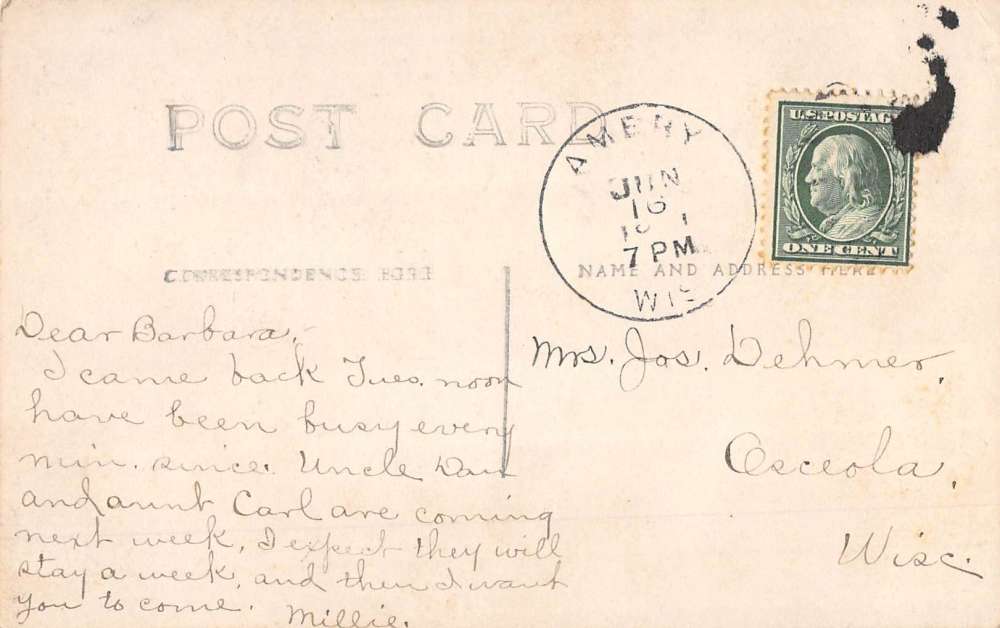 POST CARD
AMERY
JUN
16
7 PM
WIS
U.S. POSTAGE
ONE CENT
CORRESPONDENCE HERE
NAME AND ADDRESS HERE
Dear Barbara,-
I came back Tues. noon
have been busy every
min. since. Uncle Dan
and aunt Carl are coming
next week, I expect they will
stay a week, and then I want
you to come. Millie.
Mrs. Jos. Dehmer,
Osceola,
Wisc.